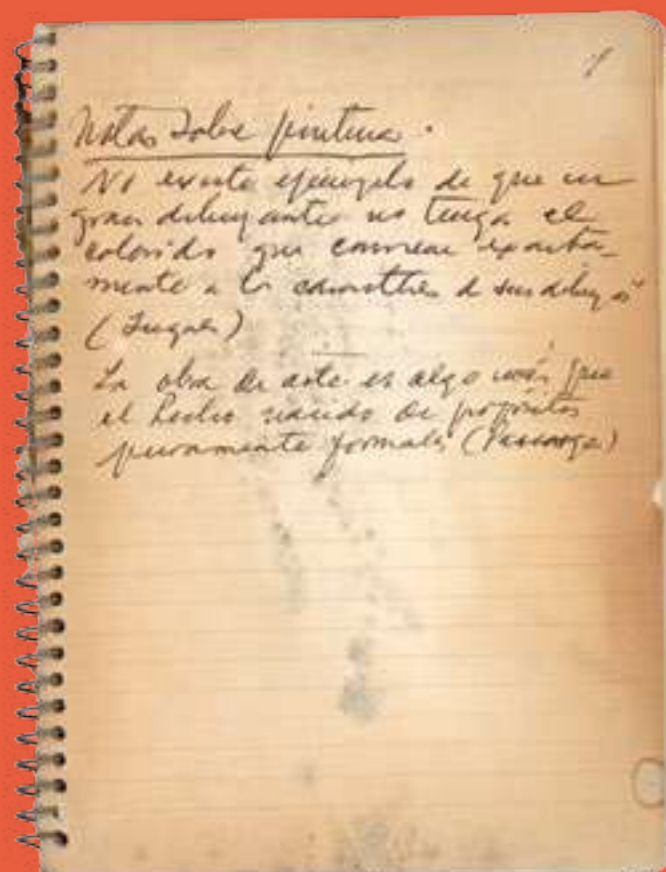 1
Notas sobre pintura.
No existe ejemplo de que un
gran dibujante no tenga el
colorido que conviene exacta-
mente a los caracteres de sus dibujos
(Ingres)
La obra de arte es algo más que
el hecho nacido de propósitos
puramente formales